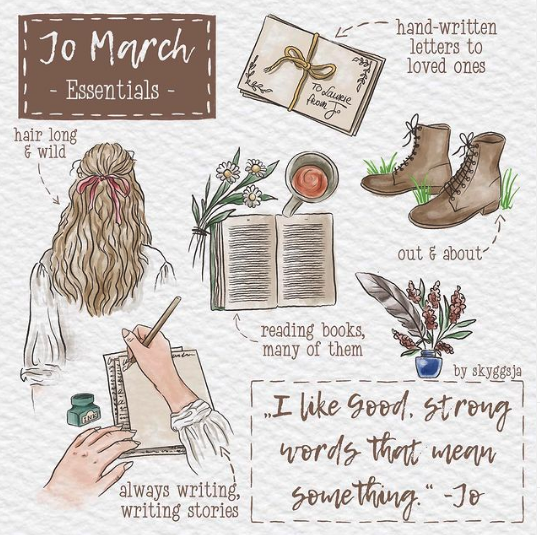 Jo March
- Essentials -
hand-written
letters to
loved ones
To Laurie
from Jo
hair long
& wild
out & about
reading books,
many of them
by skyggsja
INK
always writing,
writing stories
„I like good, strong
words that mean
something.“ -Jo